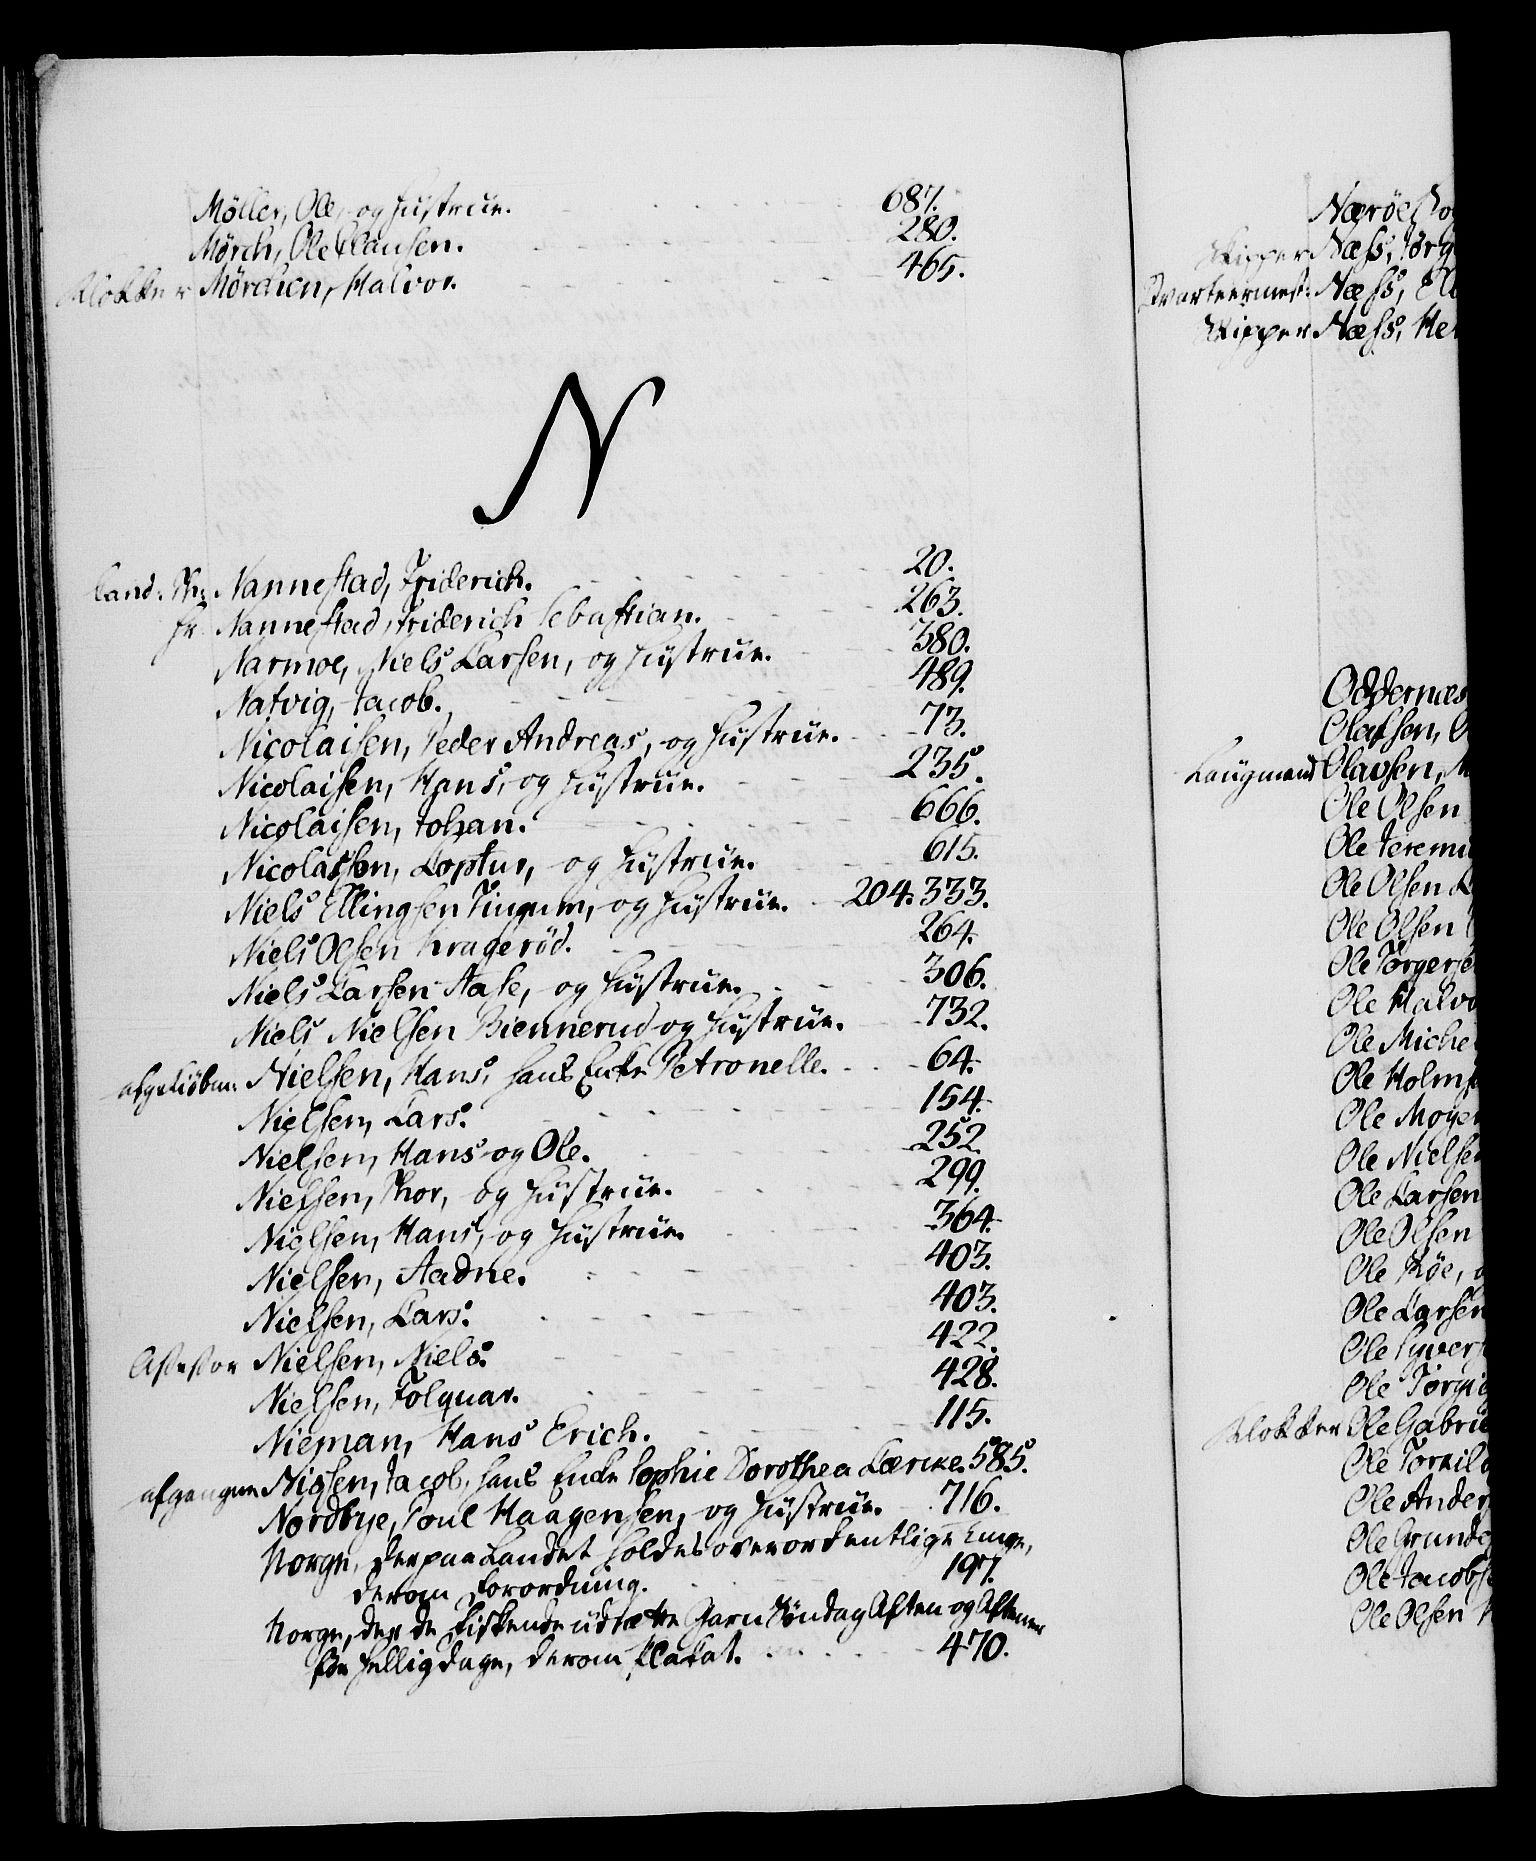 Möller, Ole, og Hustrue. 687.
Mörch, Ole Clausen. 280.
Klokker Mörchen, Halvor. 465.
N
Cand: Th: Nannestad, Friderich. 20.
Hr. Nannestad, Friderich Sebastian. 263.
Narmoe, Niels Larsen, og Hustrue. 380.
Natvig, Jacob. 489.
Nicolaisen, Peder Andreas, og Hustrue. 73.
Nicolaisen, Hans, og Hustrue. 235.
Nicolaisen, Johan. 666.
Nicolassen, Loptur, og Hustrue. 615.
Niels Ellingsen Tingum, og Hustrue. 204. 333.
Niels Olsen Kragerød. 264.
Niels Larsen Aase, og Hustrue. 306.
Niels Nielsen Biennerud og Hustrue. 732.
Nielsen, Hans, hans Enke Petronelle. 64.
Nielsen, Lars. 154.
Nielsen, Hans og Ole. 252.
Nielsen, Thor, og Hustrue. 299.
Nielsen, Hans, og Hustrue. 364.
Nielsen, Aadne. 403.
Nielsen, Lars. 403.
Assessor Nielsen, Niels. 422.
Nielsen, Folquar. 428.
Nieman, Hans Erich. 115.
afgangne Nissen, Jacob, hans Enke Sophie Dorothea Lærcke. 585.
Nordbye, Poul Haagensen, og Hustrue. 716.
Norge, der paa Landet holdes overordentlige
derom Forordning. 197.
Norge, der de Fiskende udsætte Garn Søndag Aften og Aftenen
før Helligdage, derom Placat. 470.
Nærøe
Skipper Næss, Jørg
Qvarteermest: Næss,
Skipper Næss, He
Oddernæs
Olafsen,
Laugmand Olavsen, M
Ole Olsen
Ole Jeremi
Ole Olsen
Ole Olsen
Ole Torgerse
Ole Halvo
Ole Miche
Ole Holms
Ole Moge
Ole Nielse
Ole Larsen
Ole Olsen
Ole Røe,
Ole Larsen
Ole Syvers
Ole Torgi
Klokker Ole Gabrie
Ole Torkil
Ole Ander
Ole Grunde
Ole Jacobs
Ole Olsen